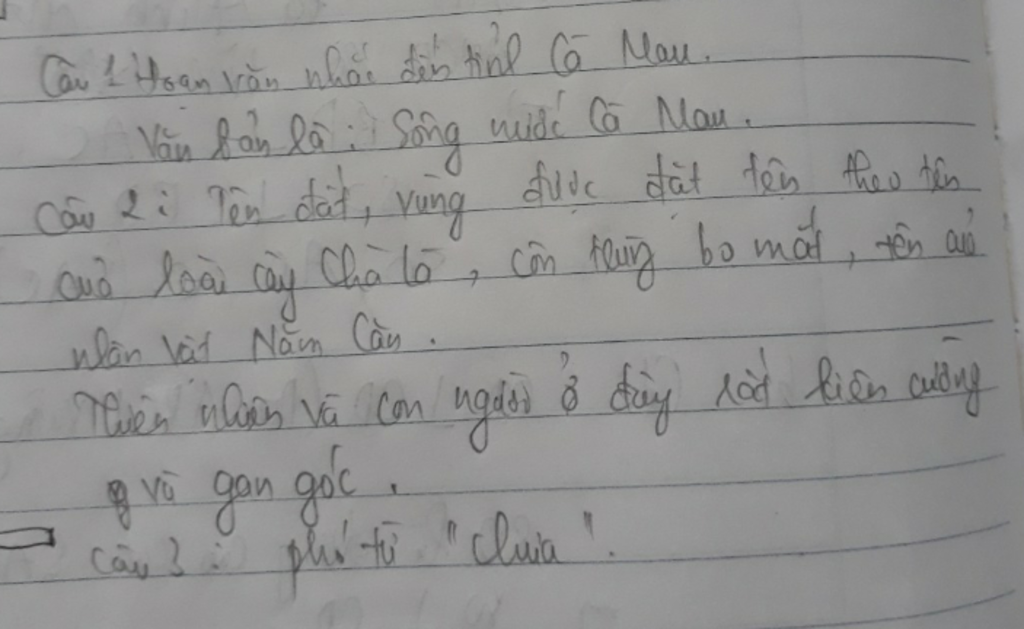 Câu 1 Hoan văn nhắc đến tỉnh Cà Mau.
Văn bản là: Sông nước Cà Mau.
Câu 2: Tên đất, vùng được đặt tên theo tên
của loài cây Chà là, côn trùng bọ mắt, tên của
nhân vật Năm Căn.
Thiên nhiên và con người ở đây rất kiên cường
và gan góc.
Câu 3: phó từ "chưa".